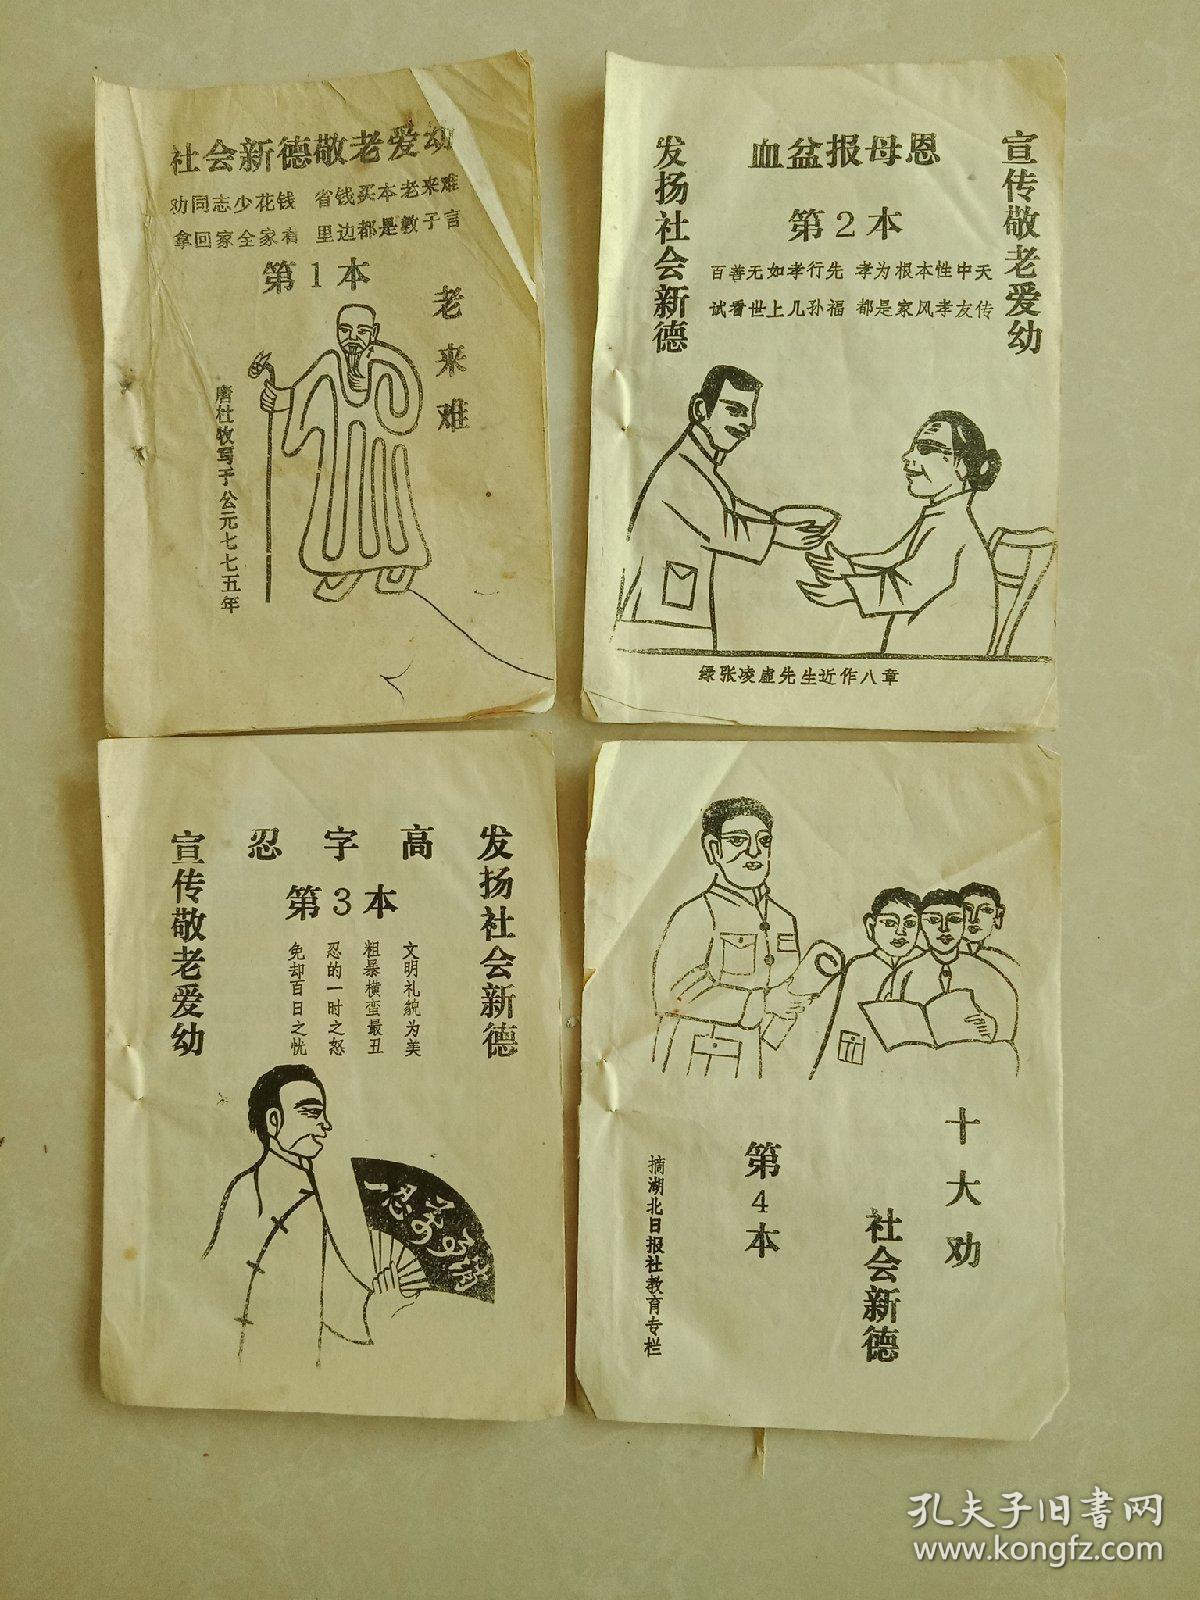 社会新德敬老爱幼
劝同志少花钱 省钱买本老来难
拿回家全家看 里边都是教子言
第1本
老来难
唐杜牧写于公元七七五年
血盆报母恩
第2本
宣传敬老爱幼
发扬社会新德
百善无如孝行先 孝为根本性中天
试看世上儿孙福 都是家风孝友传
绿张凌虚先生近作八章
忍字高
第3本
发扬社会新德
文明礼貌为美
粗暴横蛮最丑
忍的一时之怒
免却百日之忧
宣传敬老爱幼
十大劝
社会新德
第4本
摘湖北日报社教育专栏
孔夫子旧书网
www.kongfz.com